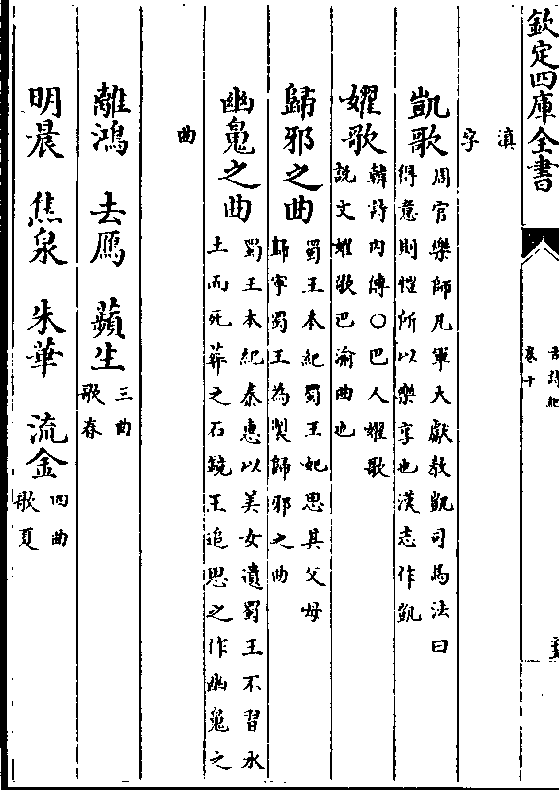 欽定四庫全書
卷十
滇
字
凱歌周官樂師凡軍大獻教凱司馬法曰
得意則愷所以樂享也漢志作凱
嬥歌韓詩内傳〇巴人嬥歌
説文嬥歌巴渝曲也
歸邪之曲蜀王本紀蜀王妃思其父母
歸寧蜀王為製歸邪之曲
幽䰟之曲蜀王本紀秦惠以美女遺蜀王不習水
土而死葬之石鏡王追思之作幽䰟之
曲
離鴻 去鴈 蘋生三曲
歌春
明晨 焦泉 朱華 流金四曲
歌夏